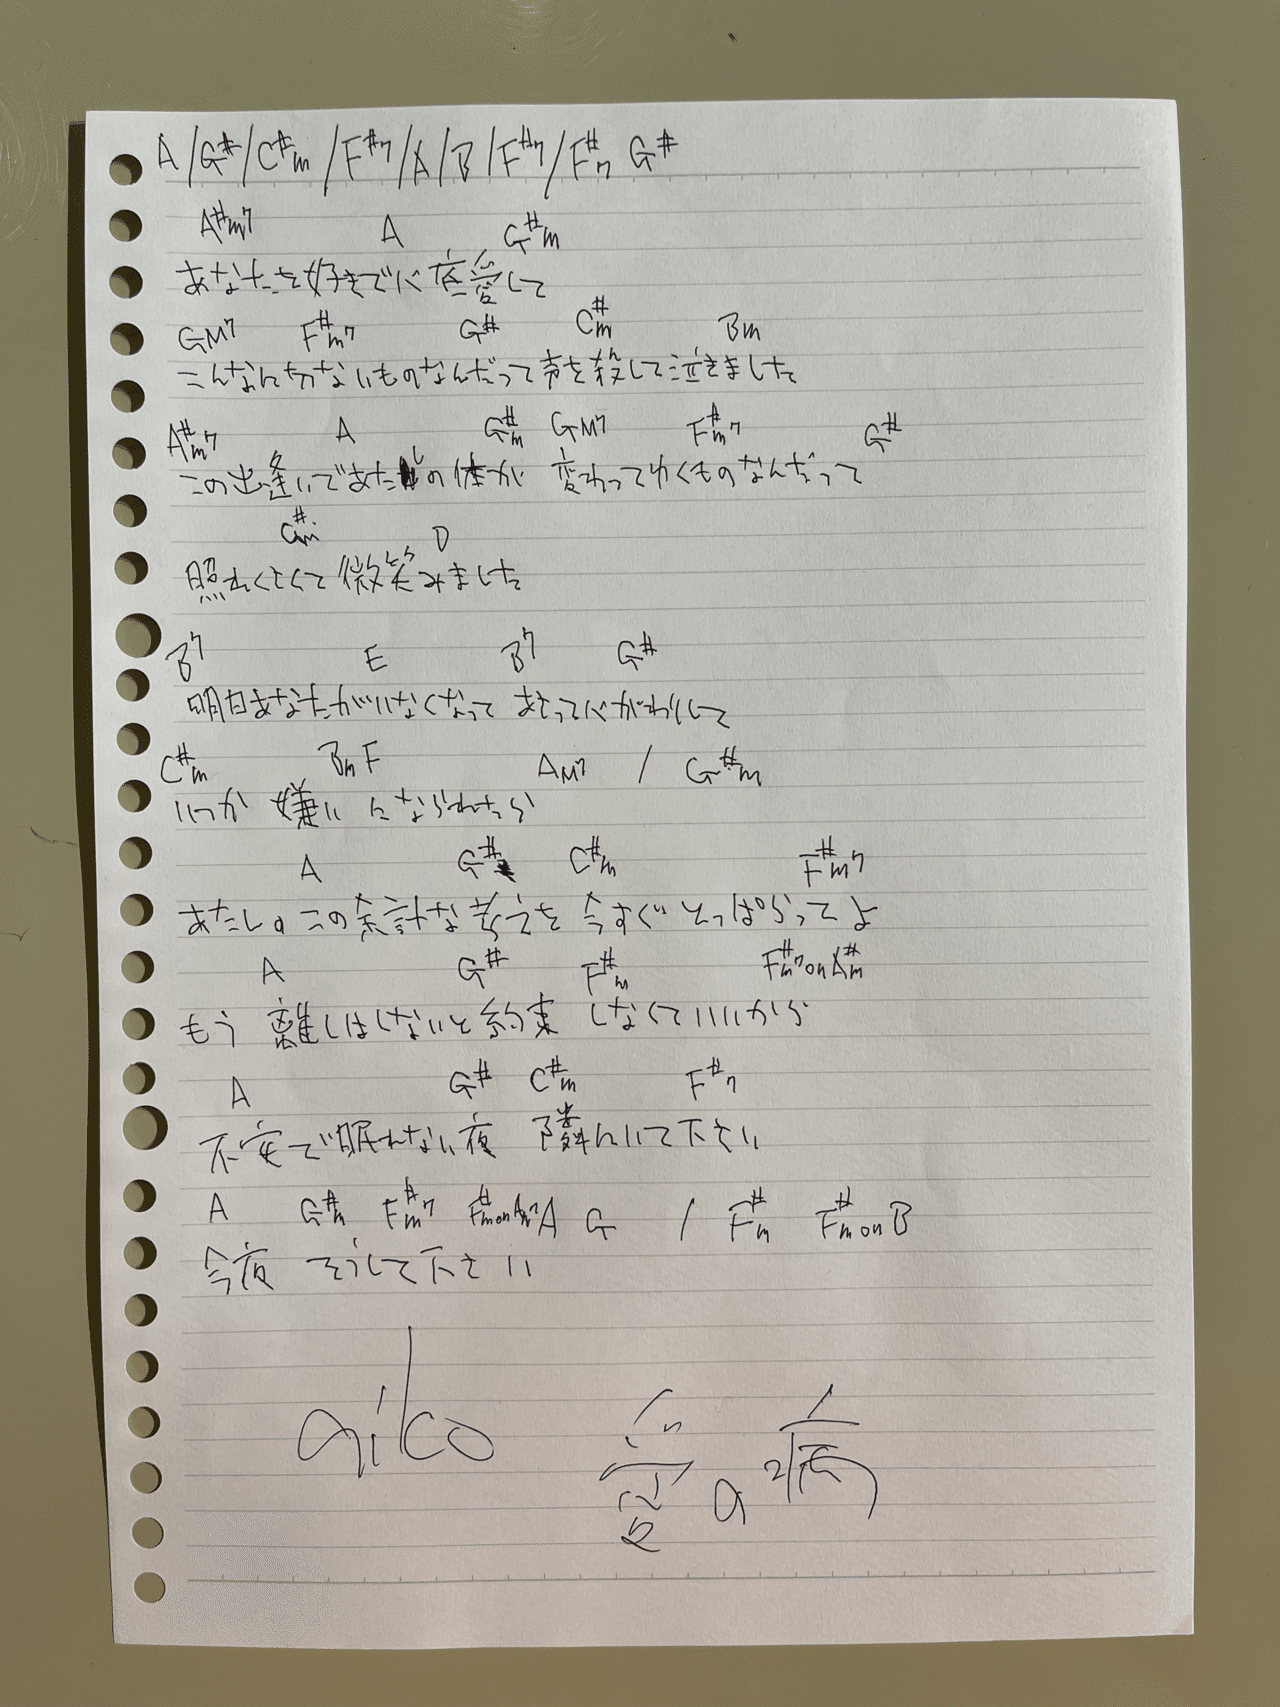 A/G#/C#m/F#7/A/B/F#7/F#7 G#
A#m7 A G#m
あなたを好きで心底愛して
GM7 F#m7 G# C#m Bm
こんなに切ないものなんだって声を殺して泣きました
A#m7 A G#m GM7 F#m7 G#
この出逢いであたしの体が 変わってゆくものなんだって
C#m D
照れくさくて微笑みました
B7 E B7 G#
明日あなたがいなくなって あさって心がわりして
C#m Bm F AM7 / G#m
いつか嫌いになられたら
A G# C#m F#m7
あたしのこの余計な考えを今すぐとっぱらってよ
A G# F#m F#m7onA#m
もう離しはしないと約束しなくていいから
A G# C#m F#7
不安で眠れない夜 隣にいて下さい
A G#m F#m7 A G / F#m F#monB
今夜そうして下さい
aiko
愛の病